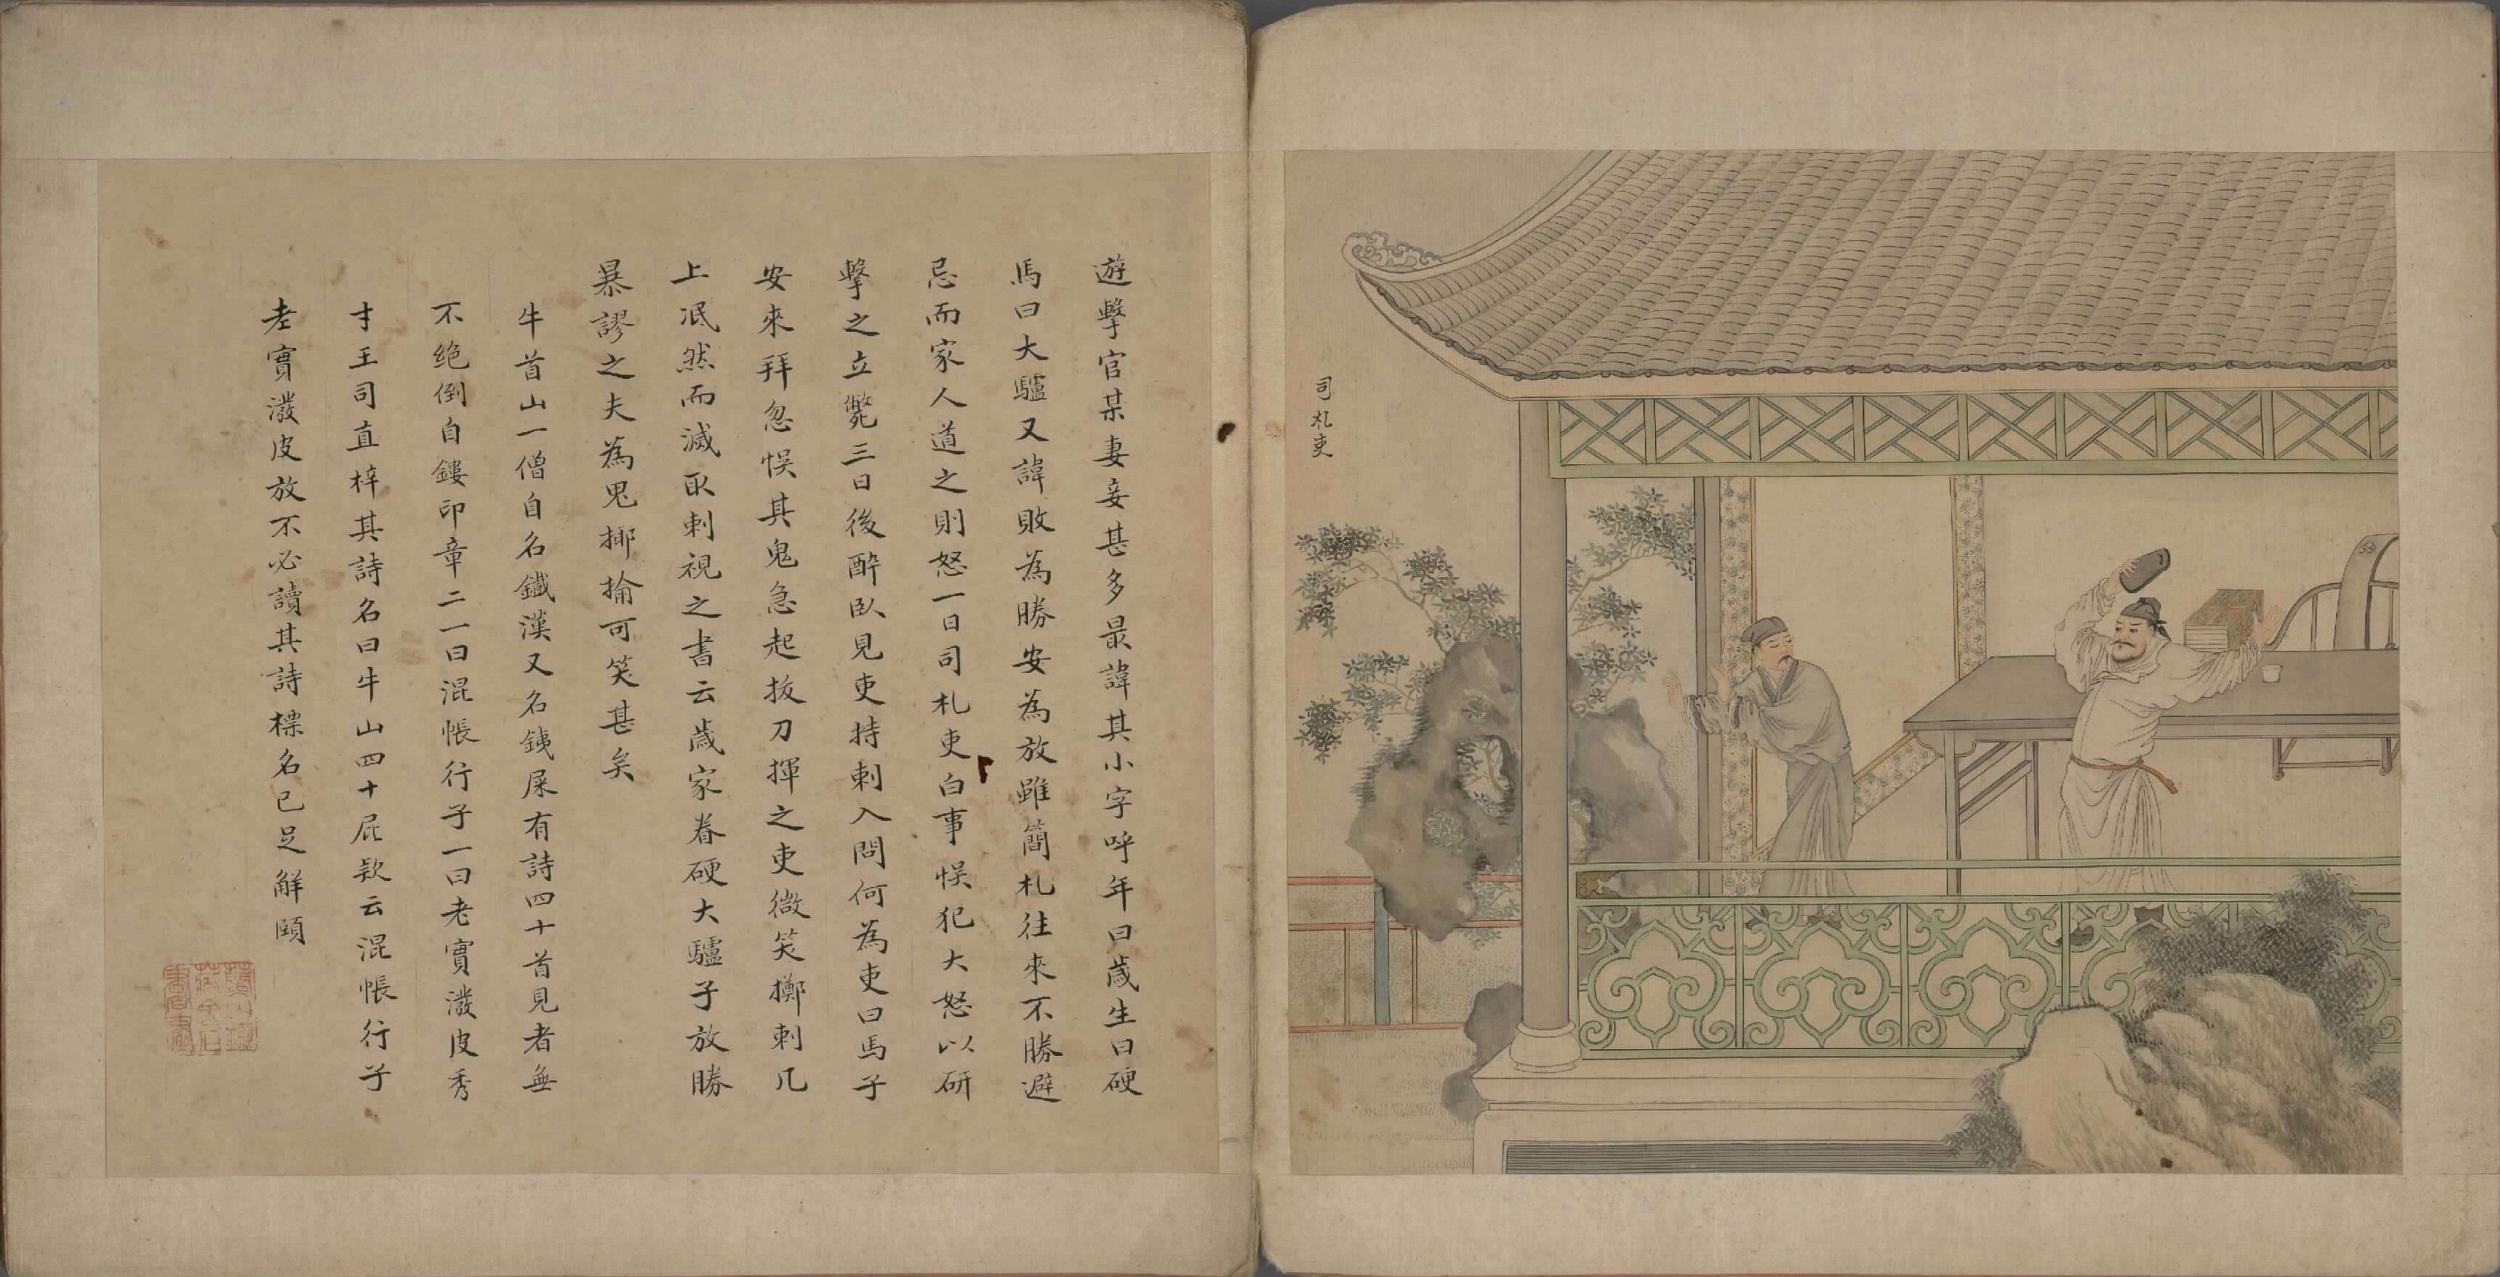 司札吏
遊擊官某妻妾甚多最諱其小字呼年曰歲生曰硬
馬曰大驢又諱敗為勝安為放雖簡札往來不勝避
忌而家人道之則怒一日司札吏白事悞犯大怒以研
擊之立斃三日後醉臥見吏持刺入問何為吏曰馬子
安來拜忽悞其鬼急起拔刀揮之吏微笑擲刺几
上泯然而滅取刺視之書云歲家眷硬大驢子放勝
暴謬之夫為鬼揶揄可笑甚矣
牛首山一僧自名鐵漢又名鐵屎有詩四十首見者無
不绝倒自鏤印章二一曰混帳行子一曰老實潑皮秀
才王司直梓其詩名曰牛山四十屁款云混帳行子
老實潑皮放不必讀其詩標名已足解頤